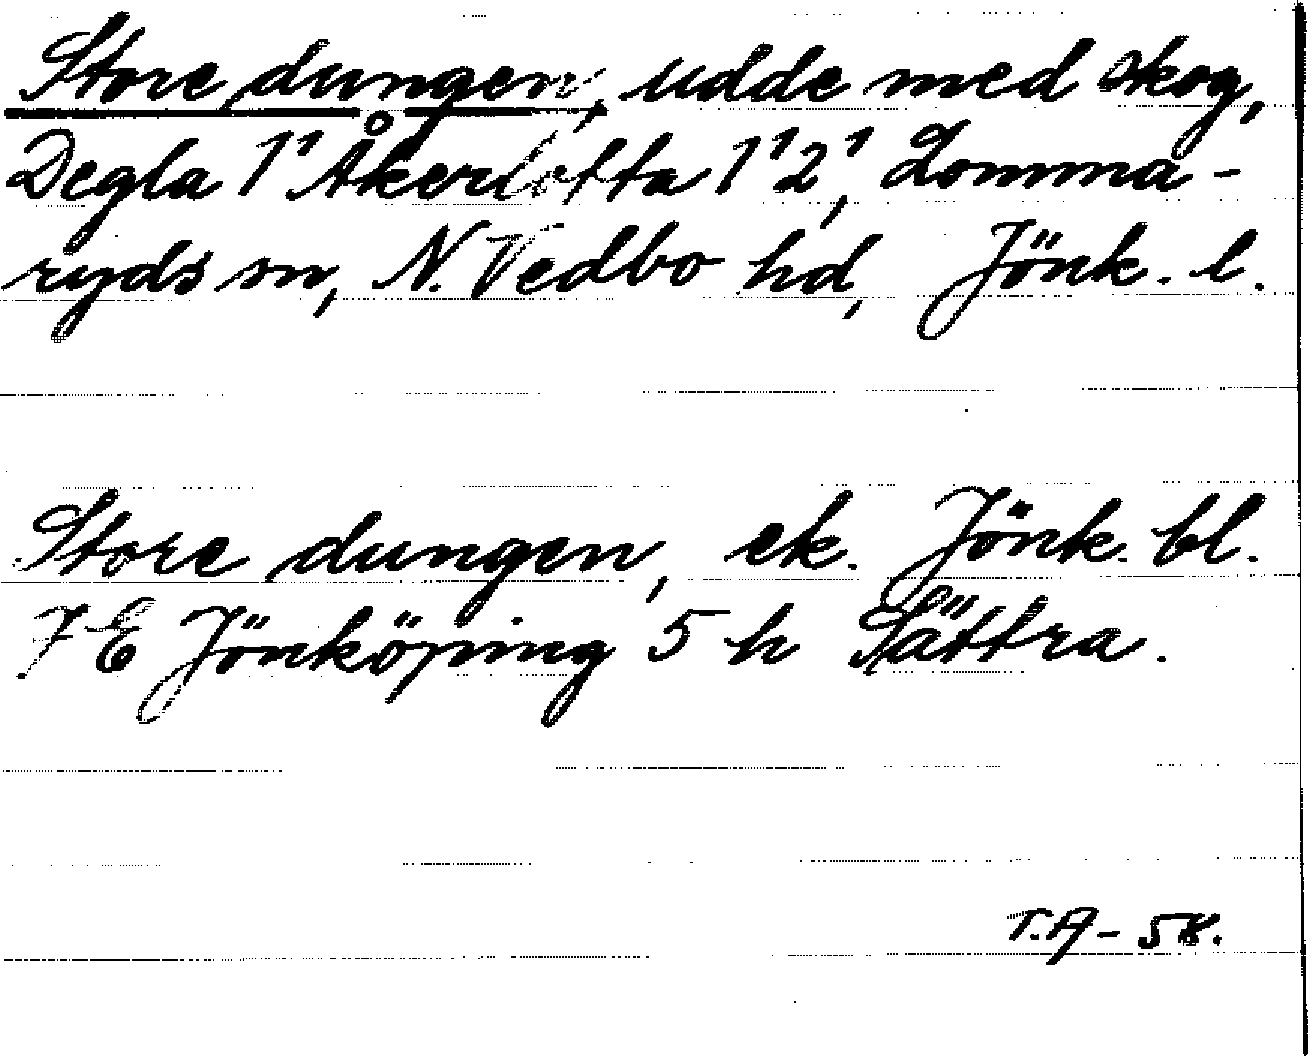 Store dungen, udde med skog,
Degla 1¹ Åkerlofta 1¹2¹, Lomma-
ryds sn, N. Vedbo hd, Jönk. l.
Store dungen, ek. Jönk. bl.
7E Jönköping 5 h Sättra.
T.A - 58.